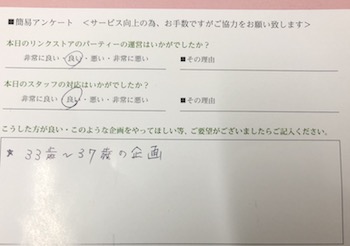 ■簡易アンケート <サービス向上の為、お手数ですがご協力をお願い致します>
本日のリンクストアのパーティーの運営はいかがでしたか?
非常に良い・良い・悪い・非常に悪い ■その理由
本日のスタッフの対応はいかがでしたか?
非常に良い・良い・悪い・非常に悪い ■その理由
こうした方が良い・このような企画をやってほしい等、ご要望がございましたらご記入ください。
★ 33歳~37歳の企画